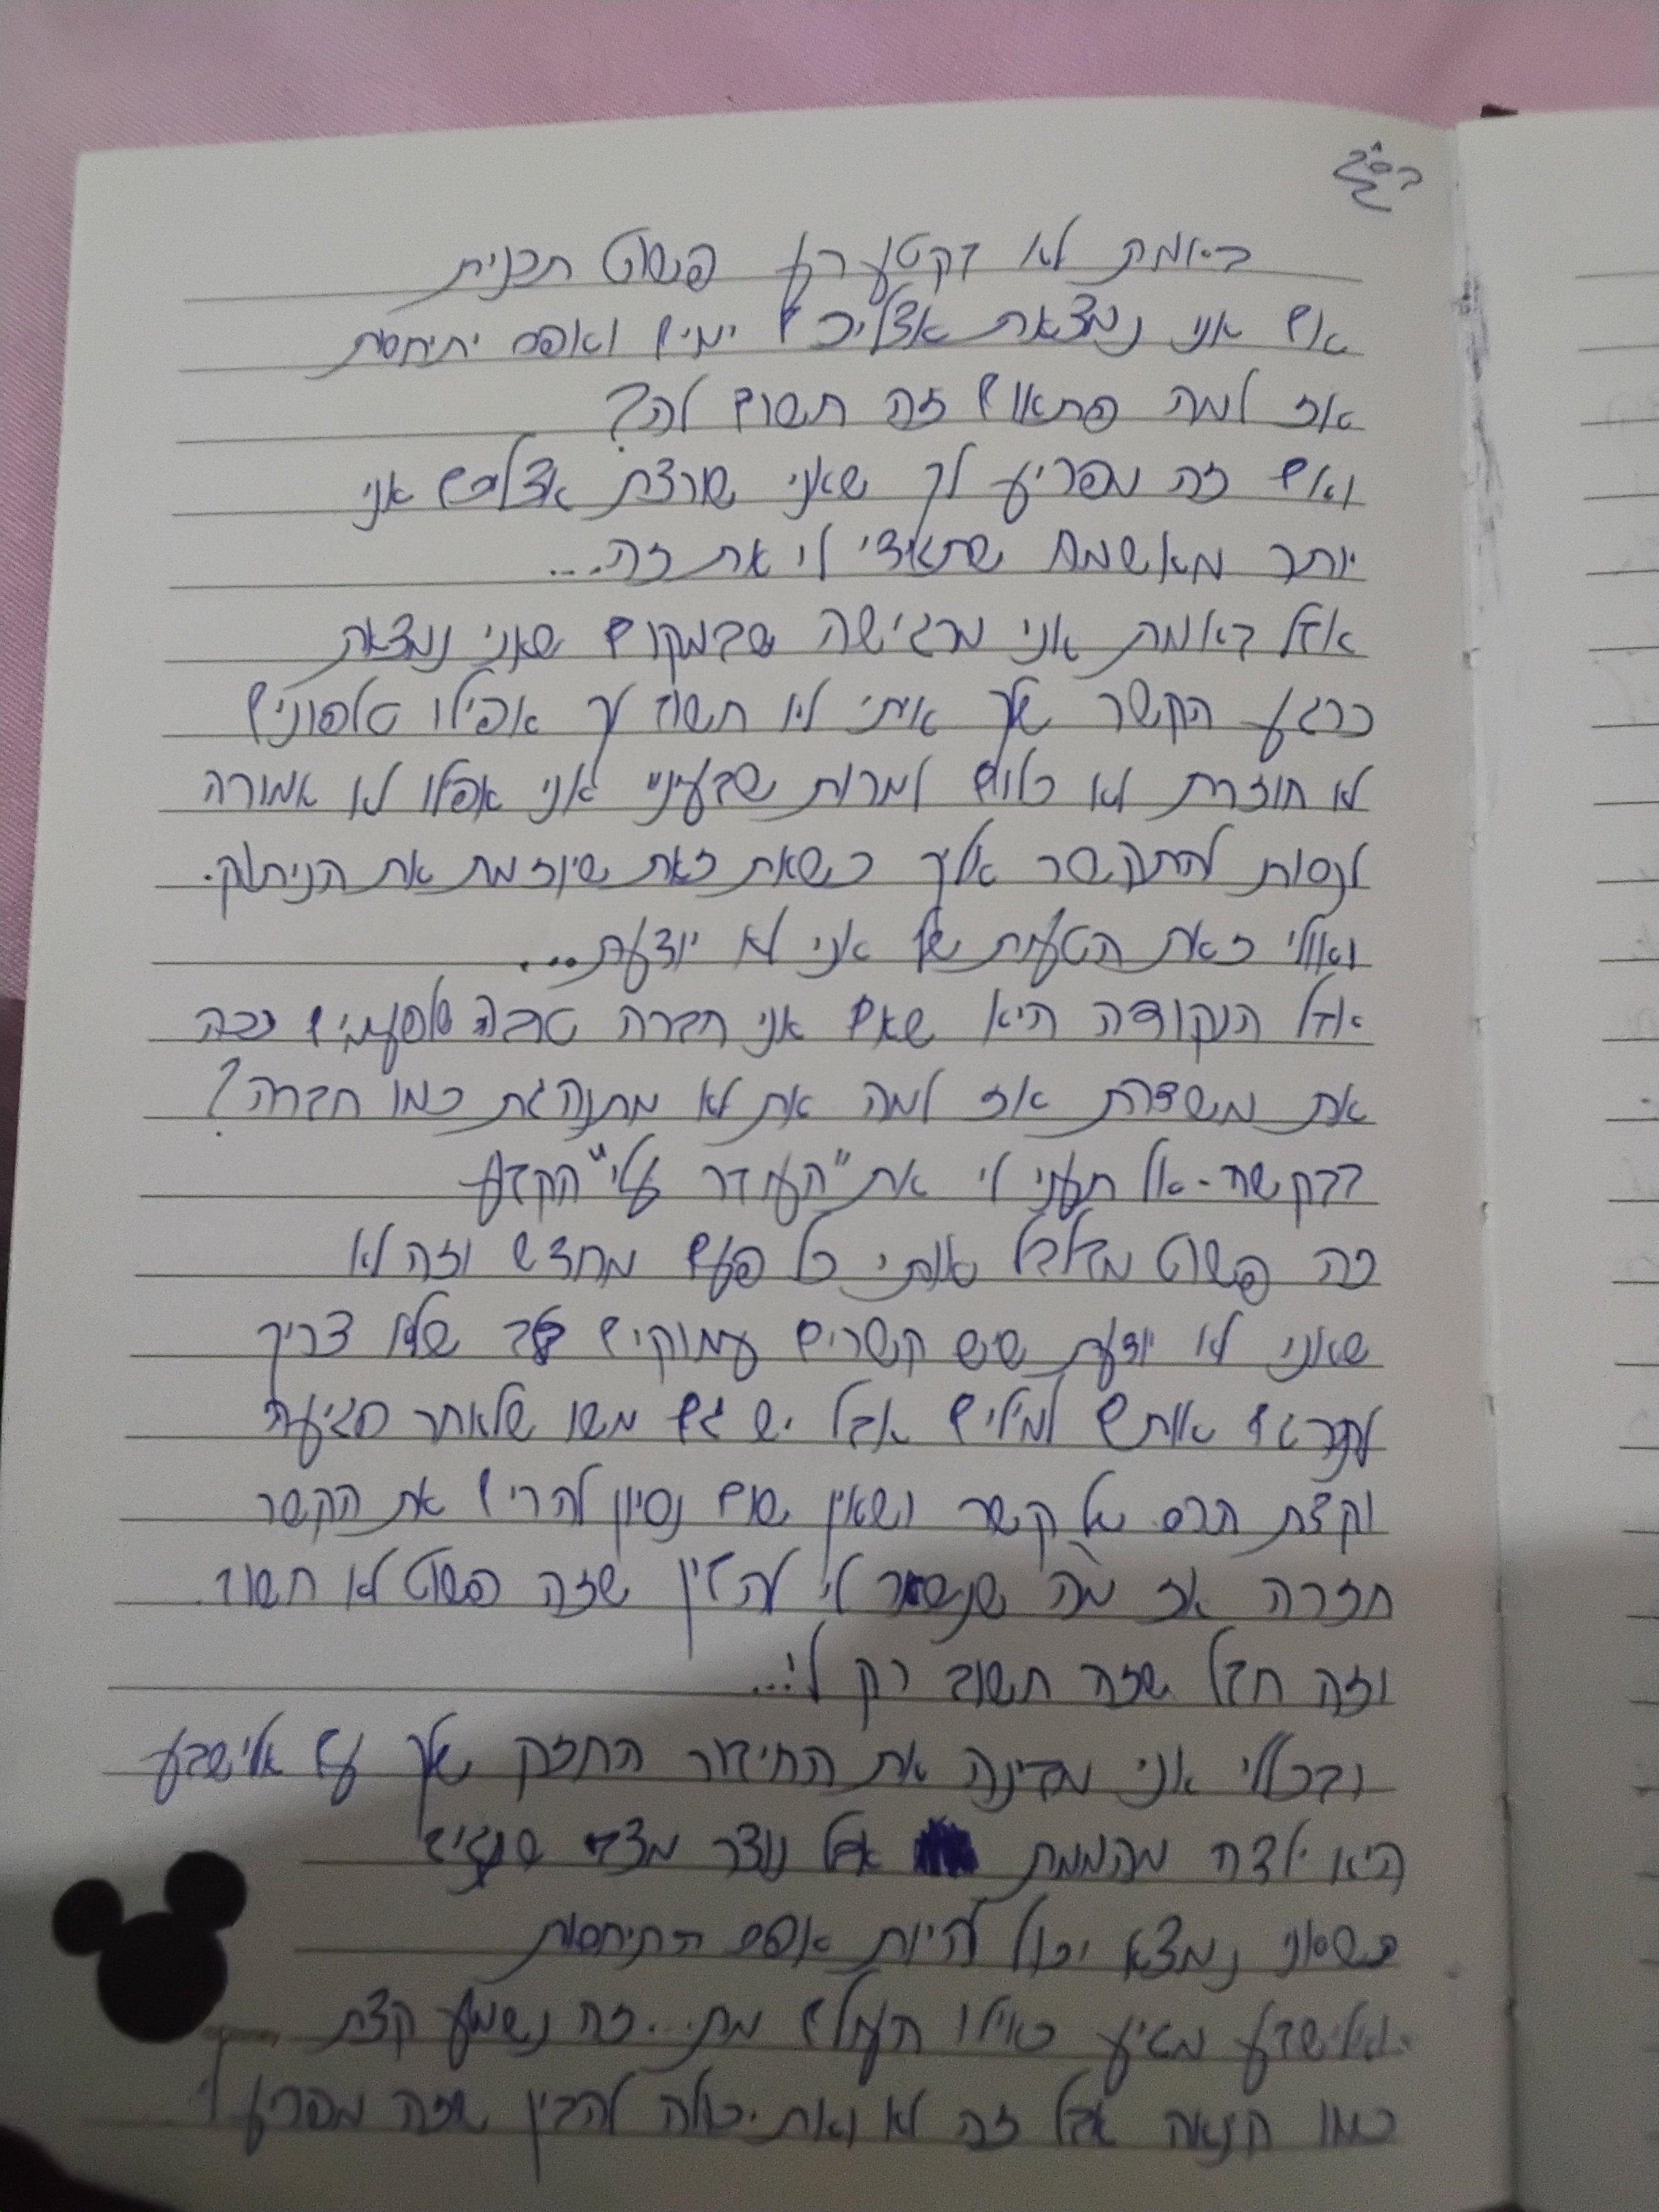 בס"ד
באמת לא בקטע רע פשוט תכנית
אם אני נמצאת אצליכם ימים ואפס יתיחסות
אז למה פתאום זה חשוב לה?
ואם זה מפריע לך שאני שורצת אצלכם אני
יותר מאשמח שתגידי לי את זה...
אבל באמת אני מרגישה שבמקום שאני נמצאת
כרגע הקשר שלך איתי לא חשוב לך אפילו טלפונים
לא חוזרת לא כלום למרות שבעיניי אני אפילו לא אמורה
לנסות להתקשר אליך כשאת זאת שיוזמת את הניתוק.
ואולי זאת הטעות שלי אני לא יודעת...
אבל הנקודה היא שאם אני חברה טובה שלפעמים ככה
את משדרת אז למה את לא מתנהגת כמו חברה?
בבקשה - אל תעני לי את "העודר עלי" הקבוע
זה פשוט מבלבל אותי כל פעם מחדש וזה לא
שאני לא יודעת שיש קשרים עמוקים שלא צריך
לתרגם אותם למילים אבל יש גם משו שלאחר פגיעה
וקצת הרס של קשר ושאין שום נסיון להרים את הקשר
חזרה אז מה שנשאר לי להבין שזה פשוט לא חשוב.
וזה חבל שזה חשוב רק לי...
ובכללי אני מבינה את החיבור החזק שלך עם אלישבע
היא ילדה מהממת אבל נוצר מצב
כשאני נמצא יכול להיות אפס התיחסות
ואלישבע מגיע כאילו העולם מת... זה נשמע קצת
כמו קנאה אבל זה לא ואת יכולה להבין שזה מפריע לי